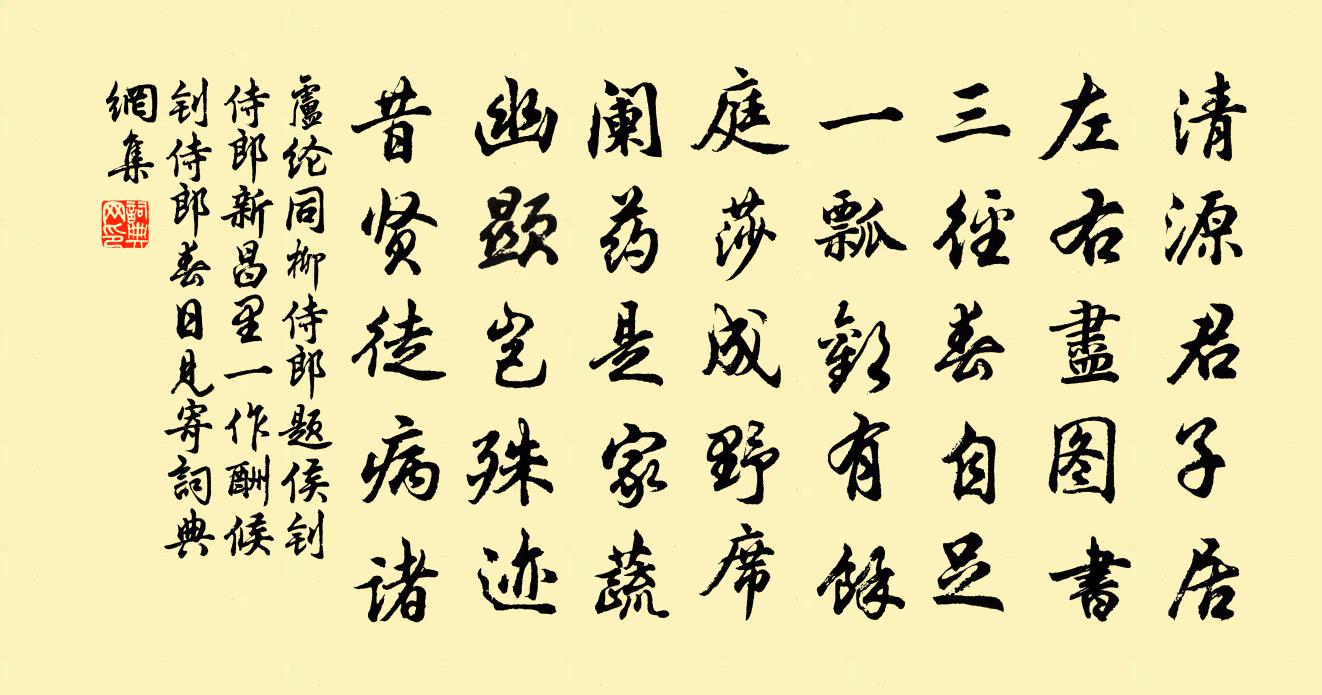 清源君子居
左右盡图書
三徑春自足
一瓢歡有餘
庭莎成野席
阑药是家蔬
幽顯岂殊迹
昔贤徒病诸
盧纶同柳侍郎题侯钊
侍郎新昌里一作酬候
钊侍郎春日見寄詞典
網集
詞典网印